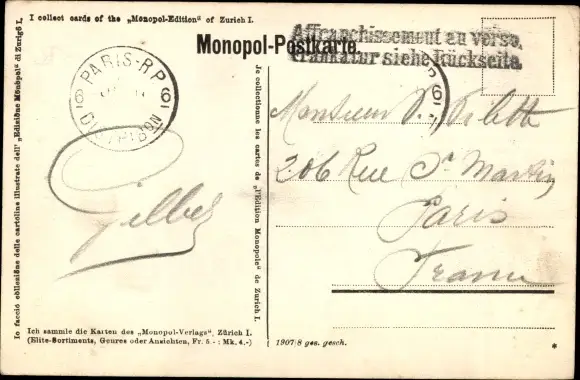 I collect cards of the „Monopol-Edition" of Zurich I.
Monopol-Postkarte.
Affranchissement au verso.
Frankatur siehe Rückseite.
PARIS-R.P
6 6
DISTRIBUTION
Io faccio collezione delle cartolina illustrate dell' „Edizione Monopol" di Zurigo I.
Je collectionne les cartes de „l'Edition Monopole" de Zurich I.
Gilbert
Monsieur P. Filette
206 Rue St Martin
Paris
France
Ich sammle die Karten des „Monopol-Verlags", Zürich I.
(Elite-Sortiments, Genres oder Ansichten, Fr. 5.- : Mk. 4.-)
1907/8 ges. gesch.
*